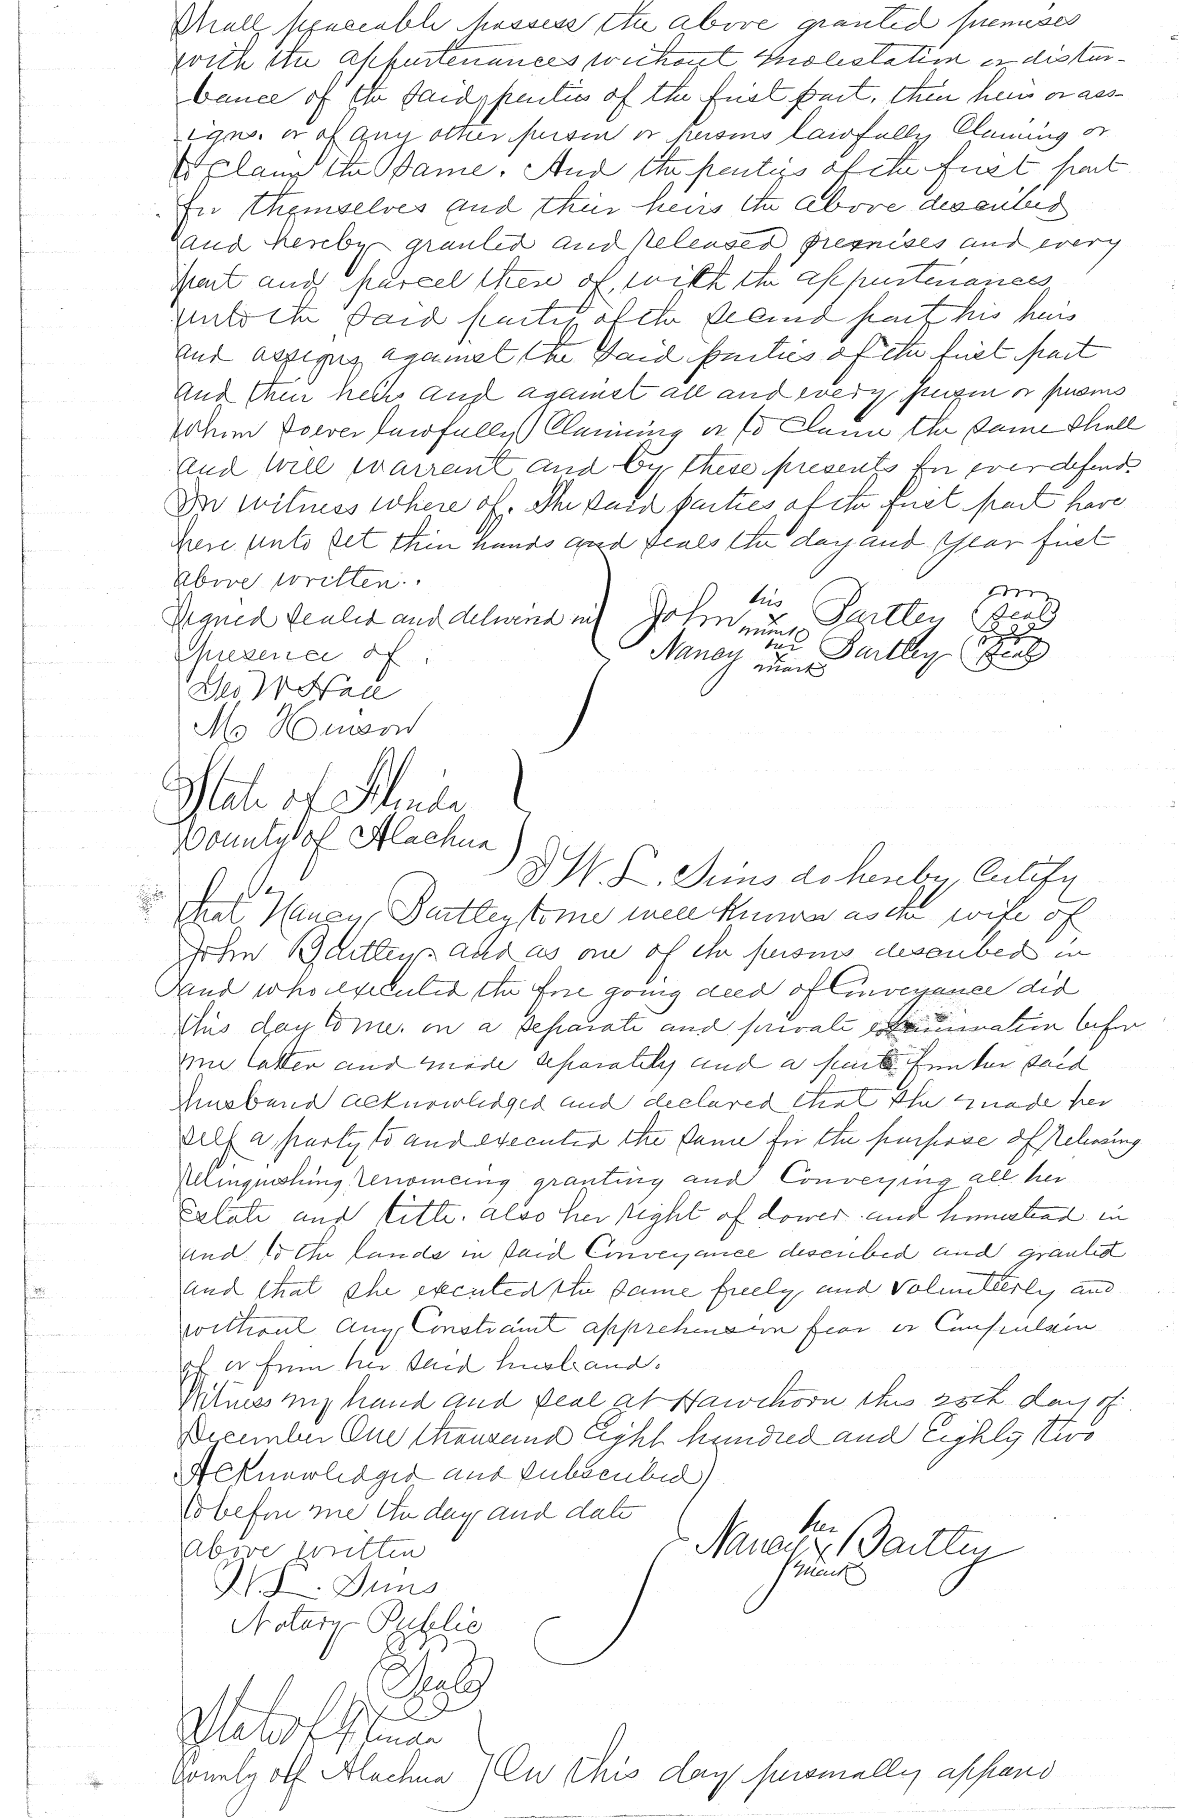 Shall peaceable possess the above granted premises
with the appurtenances without molestation or distur-
bance of the said parties of the first part, their heirs or ass-
igns. or of any other person or persons lawfully Claiming or
to Claim the Same. And the parties of the first part
for themselves and their heirs the above described
and hereby granted and released premises and every
part and parcel there of, with the appurtenances
unto the said party of the second part his heirs
and assigns against the said parties of the first part
and their heirs and against all and every person or persons
whom soever lawfully Claiming or to Claim the same shall
and will warrant and by these presents for ever defend.
In witness where of. The said parties of the first part have
here unto set their hands and seals the day and year first
above written.
Signed sealed and delivered in) John his x mark Bartley (Seal)
presence of Nancy her x mark Bartley (Seal)
Geo W Hall
M Hinson
State of Florida
County of Alachua )
I W. L. do hereby Certify
that Nancy Bartley to me well known as the wife of
John Bartley and as one of the persons described in
and who executed the fore going deed of Conveyance did
this day to me. on a separate and private examination before
me taken and made separately and a part from her said
husband acknowledged and declared that she made her
self a party to and executed the same for the purpose of Releasing
relinquishing renouncing granting and Conveying all her
Estate and title. also her right of dower and homestead in
and to the lands in said Conveyance described and granted
and that she executed the same freely and volunteerly and
without any Constraint apprehension fear or Compulsion
of or from her said husband.
Witness my hand and seal at Hawthorn this 25th day of
December One thousand Eight hundred and Eighty two
Acknowledged and subscribed)
to before me the day and date
above written Nancy her x mark Bartley
W. L.
Notary Public
(Seal)
State of Florida
County off Alachua ) On this day personally appeard